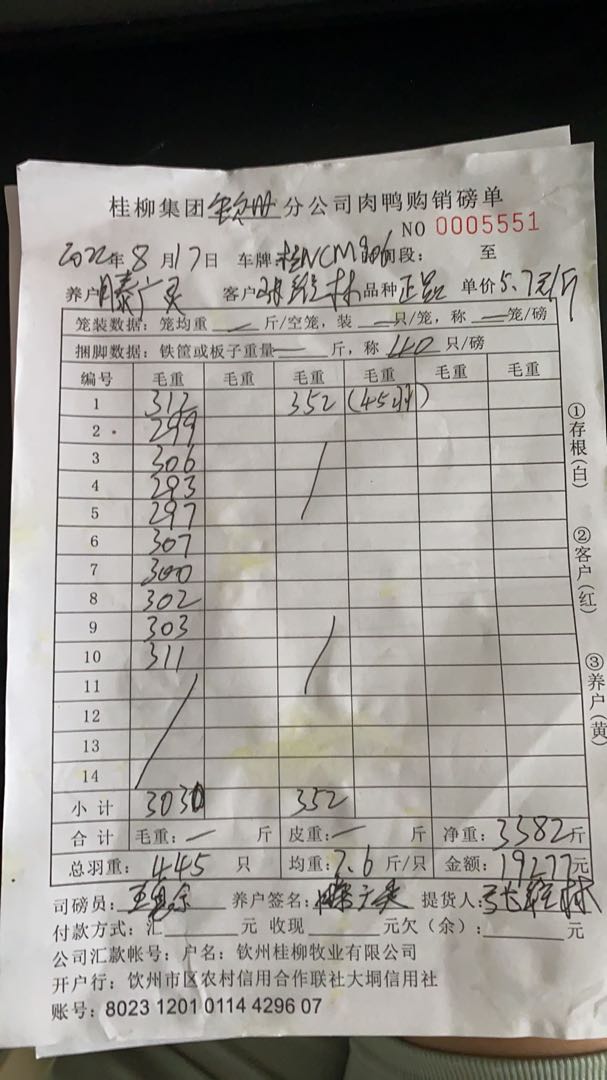 桂柳集团钦州分公司肉鸭购销磅单
NO 0005551
2022年8月17日 车牌: 段: 至
养户 客户 品种正品 单价5.7元/斤
笼装数据: 笼均重 — 斤/空笼, 装 — 只/笼, 称 — 笼/磅
捆脚数据: 铁筐或板子重量 — 斤, 称 40 只/磅
编号 毛重 毛重 毛重 毛重 毛重 毛重
1 312 352 (45羽)
2 299
3 306
4 293
5 297
6 307
7 300
8 302
9 303
10 311
11
12
13
14
小计 3030 352
合计 毛重: — 斤 皮重: — 斤 净重: 3382斤
总羽重: 445 只 均重: 7.6 斤/只 金额: 19277元
司磅员: 养户签名: 提货人:
付款方式: 汇 元 收现 元欠(余): 元
公司汇款帐号: 户名: 钦州桂柳牧业有限公司
开户行: 饮州市区农村信用合作联社大垌信用社
账号: 8023 1201 0114 4296 07
①存根(白)
②客户(红)
③养户(黄)